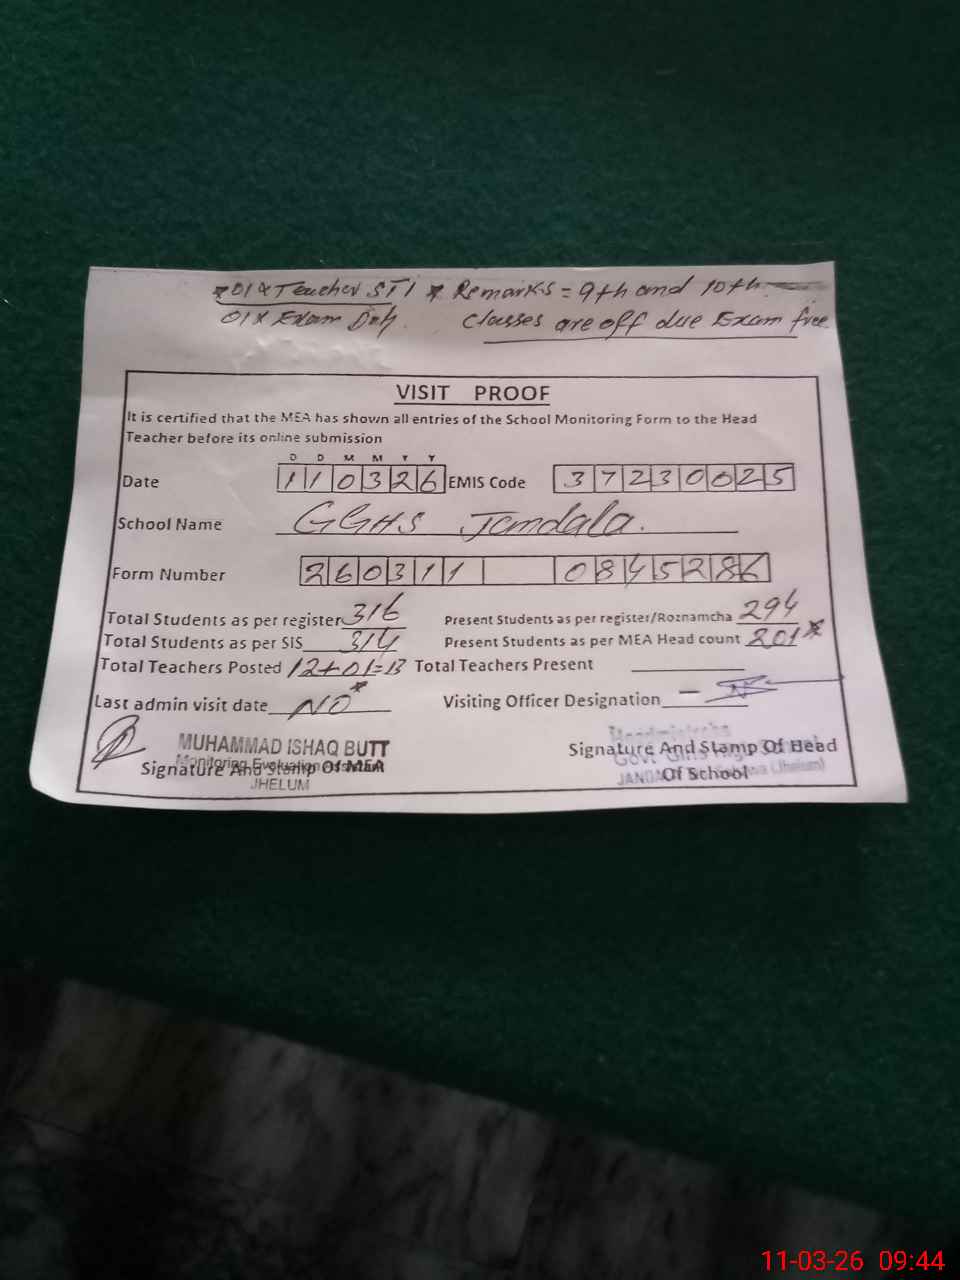 *01x Teacher STI * Remarks = 9th and 10th
01x Exam Duty. Classes are off due Exam free
VISIT PROOF
It is certified that the MEA has shown all entries of the School Monitoring Form to the Head
Teacher before its online submission
D D M M Y Y
Date 110326 EMIS Code 37230025
School Name GGHS Jandala.
Form Number 260311 0845286
Total Students as per register 316 Present Students as per register/Roznamcha 294
Total Students as per SIS 314 Present Students as per MEA Head count 201*
Total Teachers Posted 12+01=13 Total Teachers Present
Last admin visit date NO* Visiting Officer Designation —
MUHAMMAD ISHAQ BUTT
Monitoring Evaluation Assistant
Signature And Stamp Of MEA
JHELUM
Headmistress
Signature And Stamp Of Head
Govt Girls High School
Of School
(Jhelum)
11-03-26 09:44